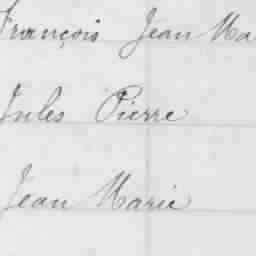 François Jean Ma
Jules Pierre
Jean Marie